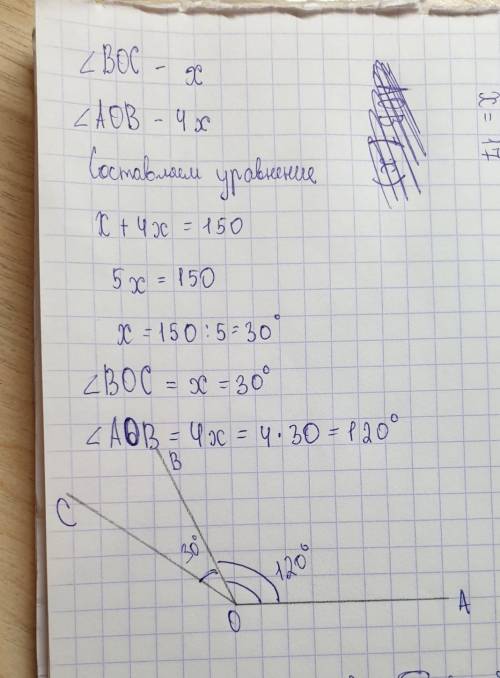 ∠BOC - x
∠AOB - 4x
Составляем уравнение
x + 4x = 150
5x = 150
x = 150 : 5 = 30°
∠BOC = x = 30°
∠AOB = 4x = 4 · 30 = 120°
B
C
30°
120°
O
A
x = 17